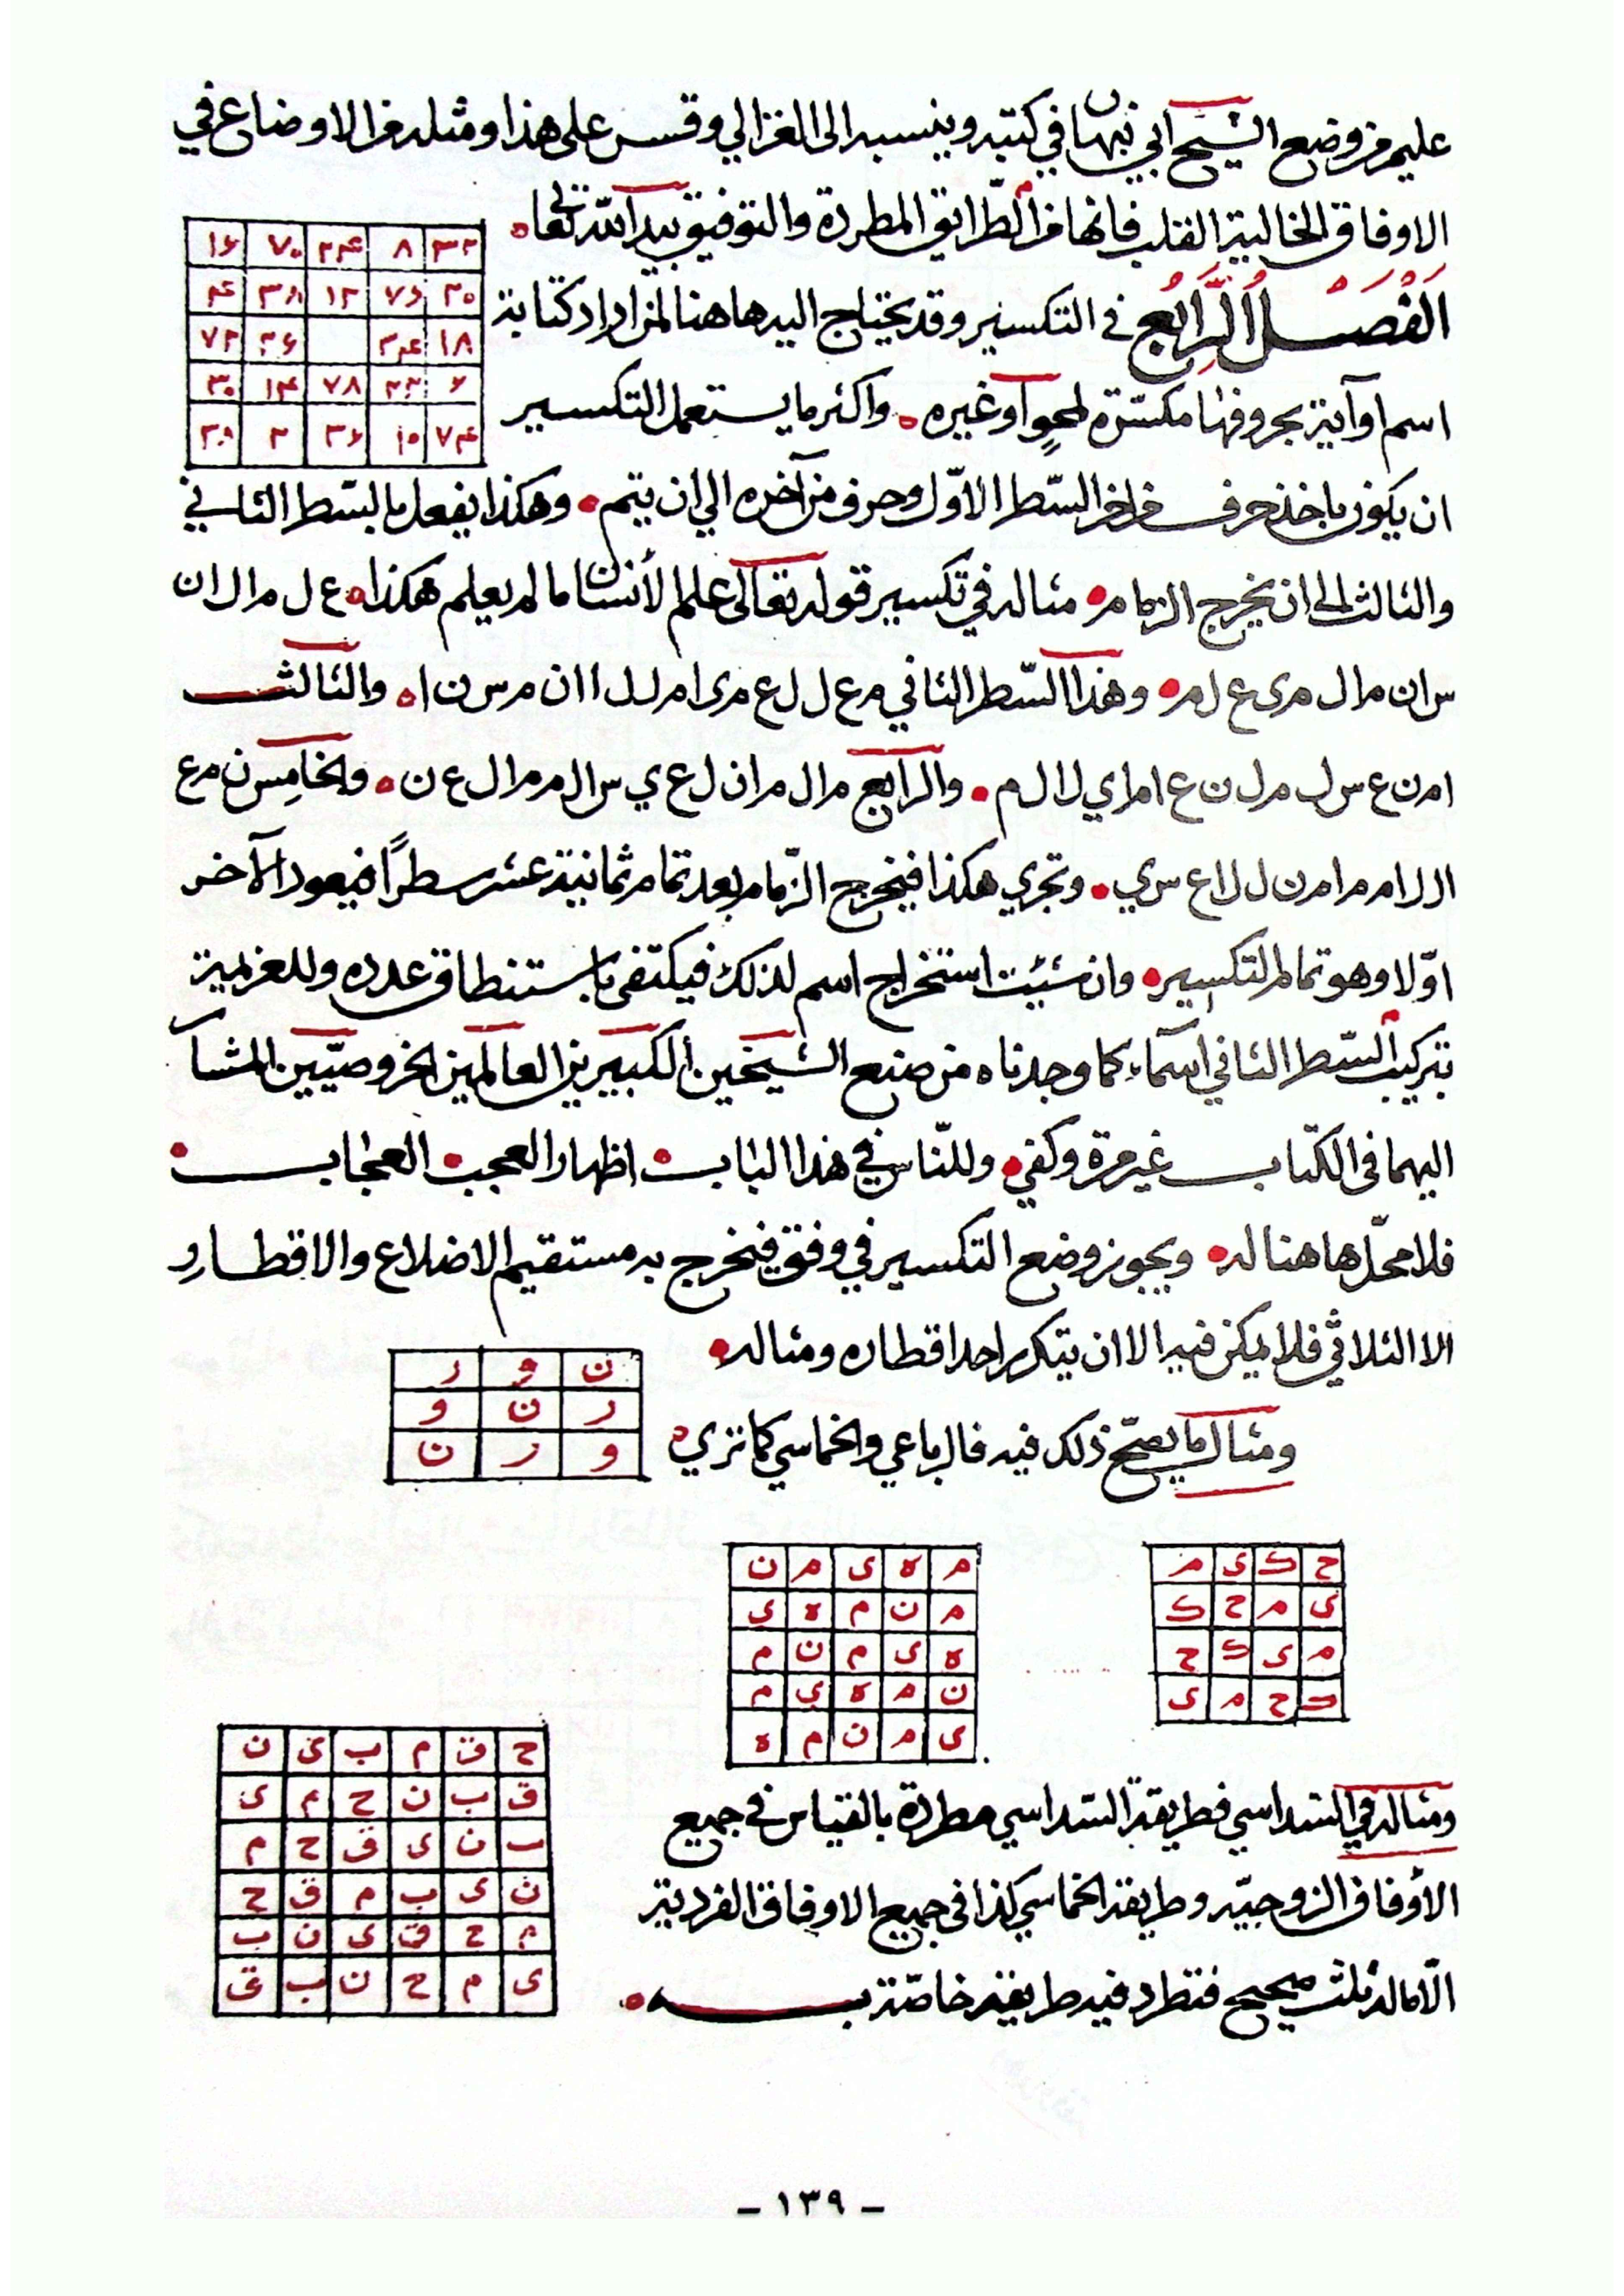 عليه من وضع الشيخ ابي نبهان في كتبه وينسبه الى الغزالي وقس على هذا ومثله من الاوضاع في
الاوفاق الخالية القلب فانها من الطرايق المطردة والتوفيق بيد الله تعالى
٣٢ ٨ ٢٤ ٧٠ ١٦
٢٠ ٧٦ ١٢ ٣٨ ٤
١٨ ٣٤ ٢٦ ٧٢
٦ ٢٢ ٧٨ ١٤ ٣٠
٧٤ ١٠ ٣٦ ٢
الفصل الرابع في التكسير وقد يحتاج اليه هاهنا لمن اراد كتابة
اسم او آية بحروفها مكسّرة لمحو او غيره واكثر ما يستعمل التكسير
ان يكون باخذ حرف من اخر السّطر الاوّل وحرف من آخره الي ان يتم وهكذا يفعل بالسّطر الثاني
والثالث الى ان يخرج الزمام مثاله في تكسير قوله تعالى علم الأنسان ما لم يعلم هكذا ع ل م ا ل ا ن
س ا ن م ا ل م ى ع ل م وهذا السّطر الثاني م ع ل ل ع م ى ا م ل ل ا ا ن م س ن ا والثالث
ا م ن ع س ل م ل ن ع ا م ا ي ل ا ل م والرابع م ا ل م ا ن ل ع ي س ا ل م م ا ل ع ن والخامس ن م ع
ا ل ل ا م م ا م ن ل ل ا ع س ي وتجري هكذا فيخرج الزّمام بعد تمام ثمانية عشر سطرًا فيعود الآخر
اوّلا وهو تمام التكسير وان شيت استخراج اسم لذلك فيكتفى باستنطاق عدده وللعزيمة
بتركيب السّطر الثاني اسماء كما وجدناه من صنع الشيخين الكبيرين العالمين الخروصيّين المشار
اليهما في الكتاب غير مرة وكفي وللنّاس في هذا الباب اظهار العجب العجاب
فلا محلّ هاهنا له ويجوز وضع التكسير في وفق فيخرج به مستقيم الاضلاع والاقطار
الا الثلاثي فلا يمكن فيه الا ان يتكرر احد اقطاره ومثاله
ن و ر
ر ن و
و ر ن
ومثال ما يصحّ ذلك فيه فالرباعي والخماسي كما تري
ح ك ى م
ى م ح ك
م ى ك ح
ك ح م ى
م ه ى م ن
م ن م ه ى
ه ى م ن م
ن م ه ى م
ى م ن م ه
ومثاله في السّداسي فطريقة السّداسي مطردة بالقياس في جميع
الأوفاق الزوجيّه وطريقة الخماسي كذا في جميع الاوفاق الفردية
الّا ماله ثلث صحيح فتطرد فيه طريقة خاصّة به
ح ق م ب ى ن
ق ب ن ح م ى
ب ن ى ق ح م
ن ى ب م ق ح
م ح ق ى ن ب
ى م ح ن ب ق
- ١٣٩ -